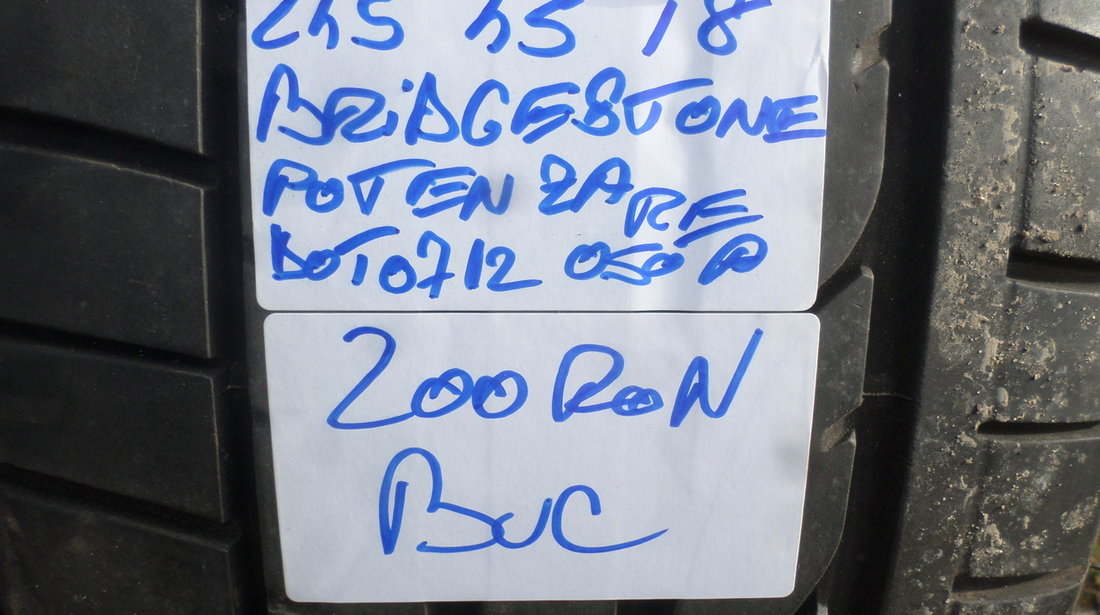 245 45 18
BRiDGESTONE
POTENZA RE
DOT0712 050 A
200 RON
BUC